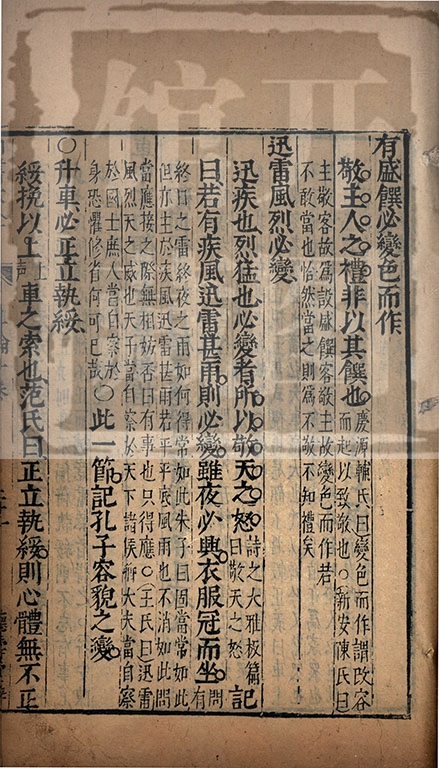 有盛饌必變色而作
敬主人之禮非以其饌也慶源輔氏曰變色而作謂改容
而起以致敬也○新安陳氏曰
主敬客故為設盛饌客敬主故變色而作若
不敢當也怡然當之則為不敬不知禮矣
迅雷風烈必變
迅疾也烈猛也必變者所以敬天之怒詩之大雅板篇
曰敬天之怒記
曰若有疾風迅雷甚雨則必變雖夜必興衣服冠而坐問
有
終日之雷終夜之雨如何得常如此朱子曰固當常如此
但亦主於疾風迅雷甚雨若平平底風雨也不消如此問
當應接之際無相妨否曰有事也只得應○王氏曰迅雷
風烈天之威也天子當自察於天下諸侯
於國士庶人當自察於
身恐懼修省何可已哉○此一節記孔子容貌之變
○升車必正立執綏
綏挽以上車之索也范氏曰正立執綏則心體無不正